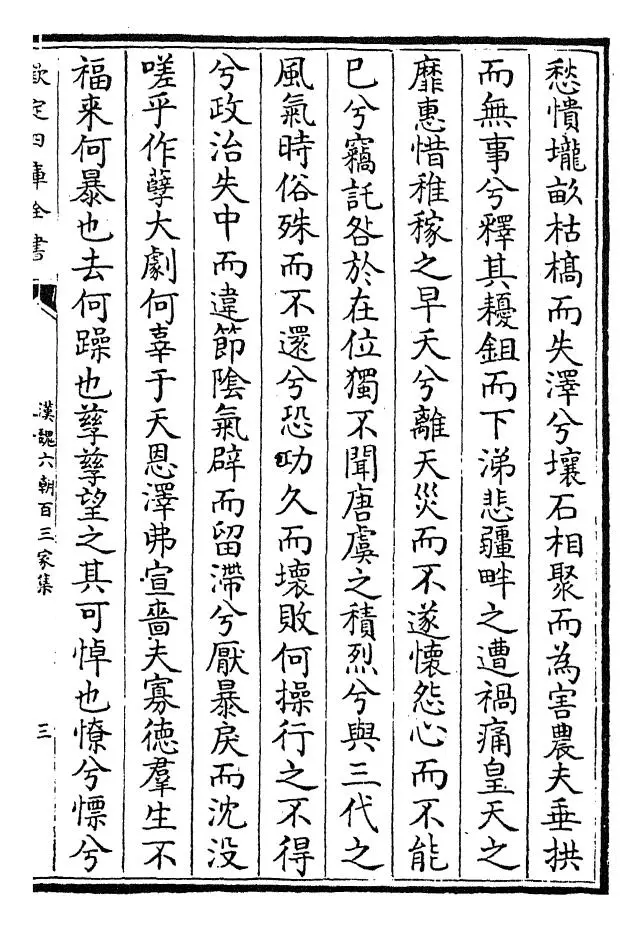 愁憒壠畝枯槁而失澤兮壤石相聚而為害農夫垂拱
而無事兮釋其耰鉏而下涕悲疆畔之遭禍痛皇天之
靡惠惜稚稼之早夭兮離天災而不遂懷怨心而不能
已兮竊託咎於在位獨不聞唐虞之積烈兮與三代之
風氣時俗殊而不還兮恐功久而壞敗何操行之不得
兮政治失中而違節隂氣辟而留滯兮厭暴戾而沈没
嗟乎作孽大劇何辜于天恩澤弗宣嗇夫寡徳羣生不
福来何暴也去何躁也孳孳望之其可悼也憭兮慄兮
欽定四庫全書
漢魏六朝百三家集
三